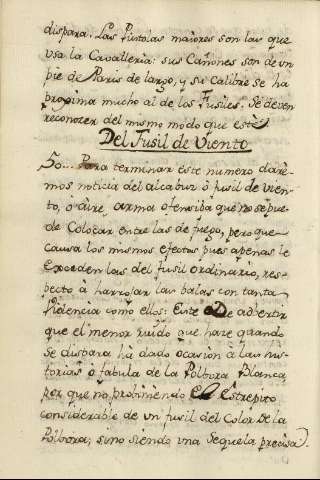 dispara. Las Pistolas maiores son las que
usa la Cavalleria: sus Cañones son de un
pie de Paris de largo, y su calibre se ha
proxima mucho al de los Fusiles. Se deven
reconozer del mismo modo que este
Del Fusil de Viento
50... Para terminar este numero dare
mos noticia del alcabuz ò fusil de vien-
to, o aire, arma ofensiba que no se pue-
de Colocar entre las de fuego, pero que
causa los mismos efectos pues apenas le
Exceden las del fusil ordinario, res-
pecto à harrojar las balas con tanta
violencia como ellos: Este De advertir
que el menor ruido que haze quando
se dispara hà dado ocasion à las his-
torias ò fabula de la Polbora Blanca,
por que no probiniendo El Estrepito
considerable de un fusil del Color De la
Polbora, sino siendo una Sequela precisa